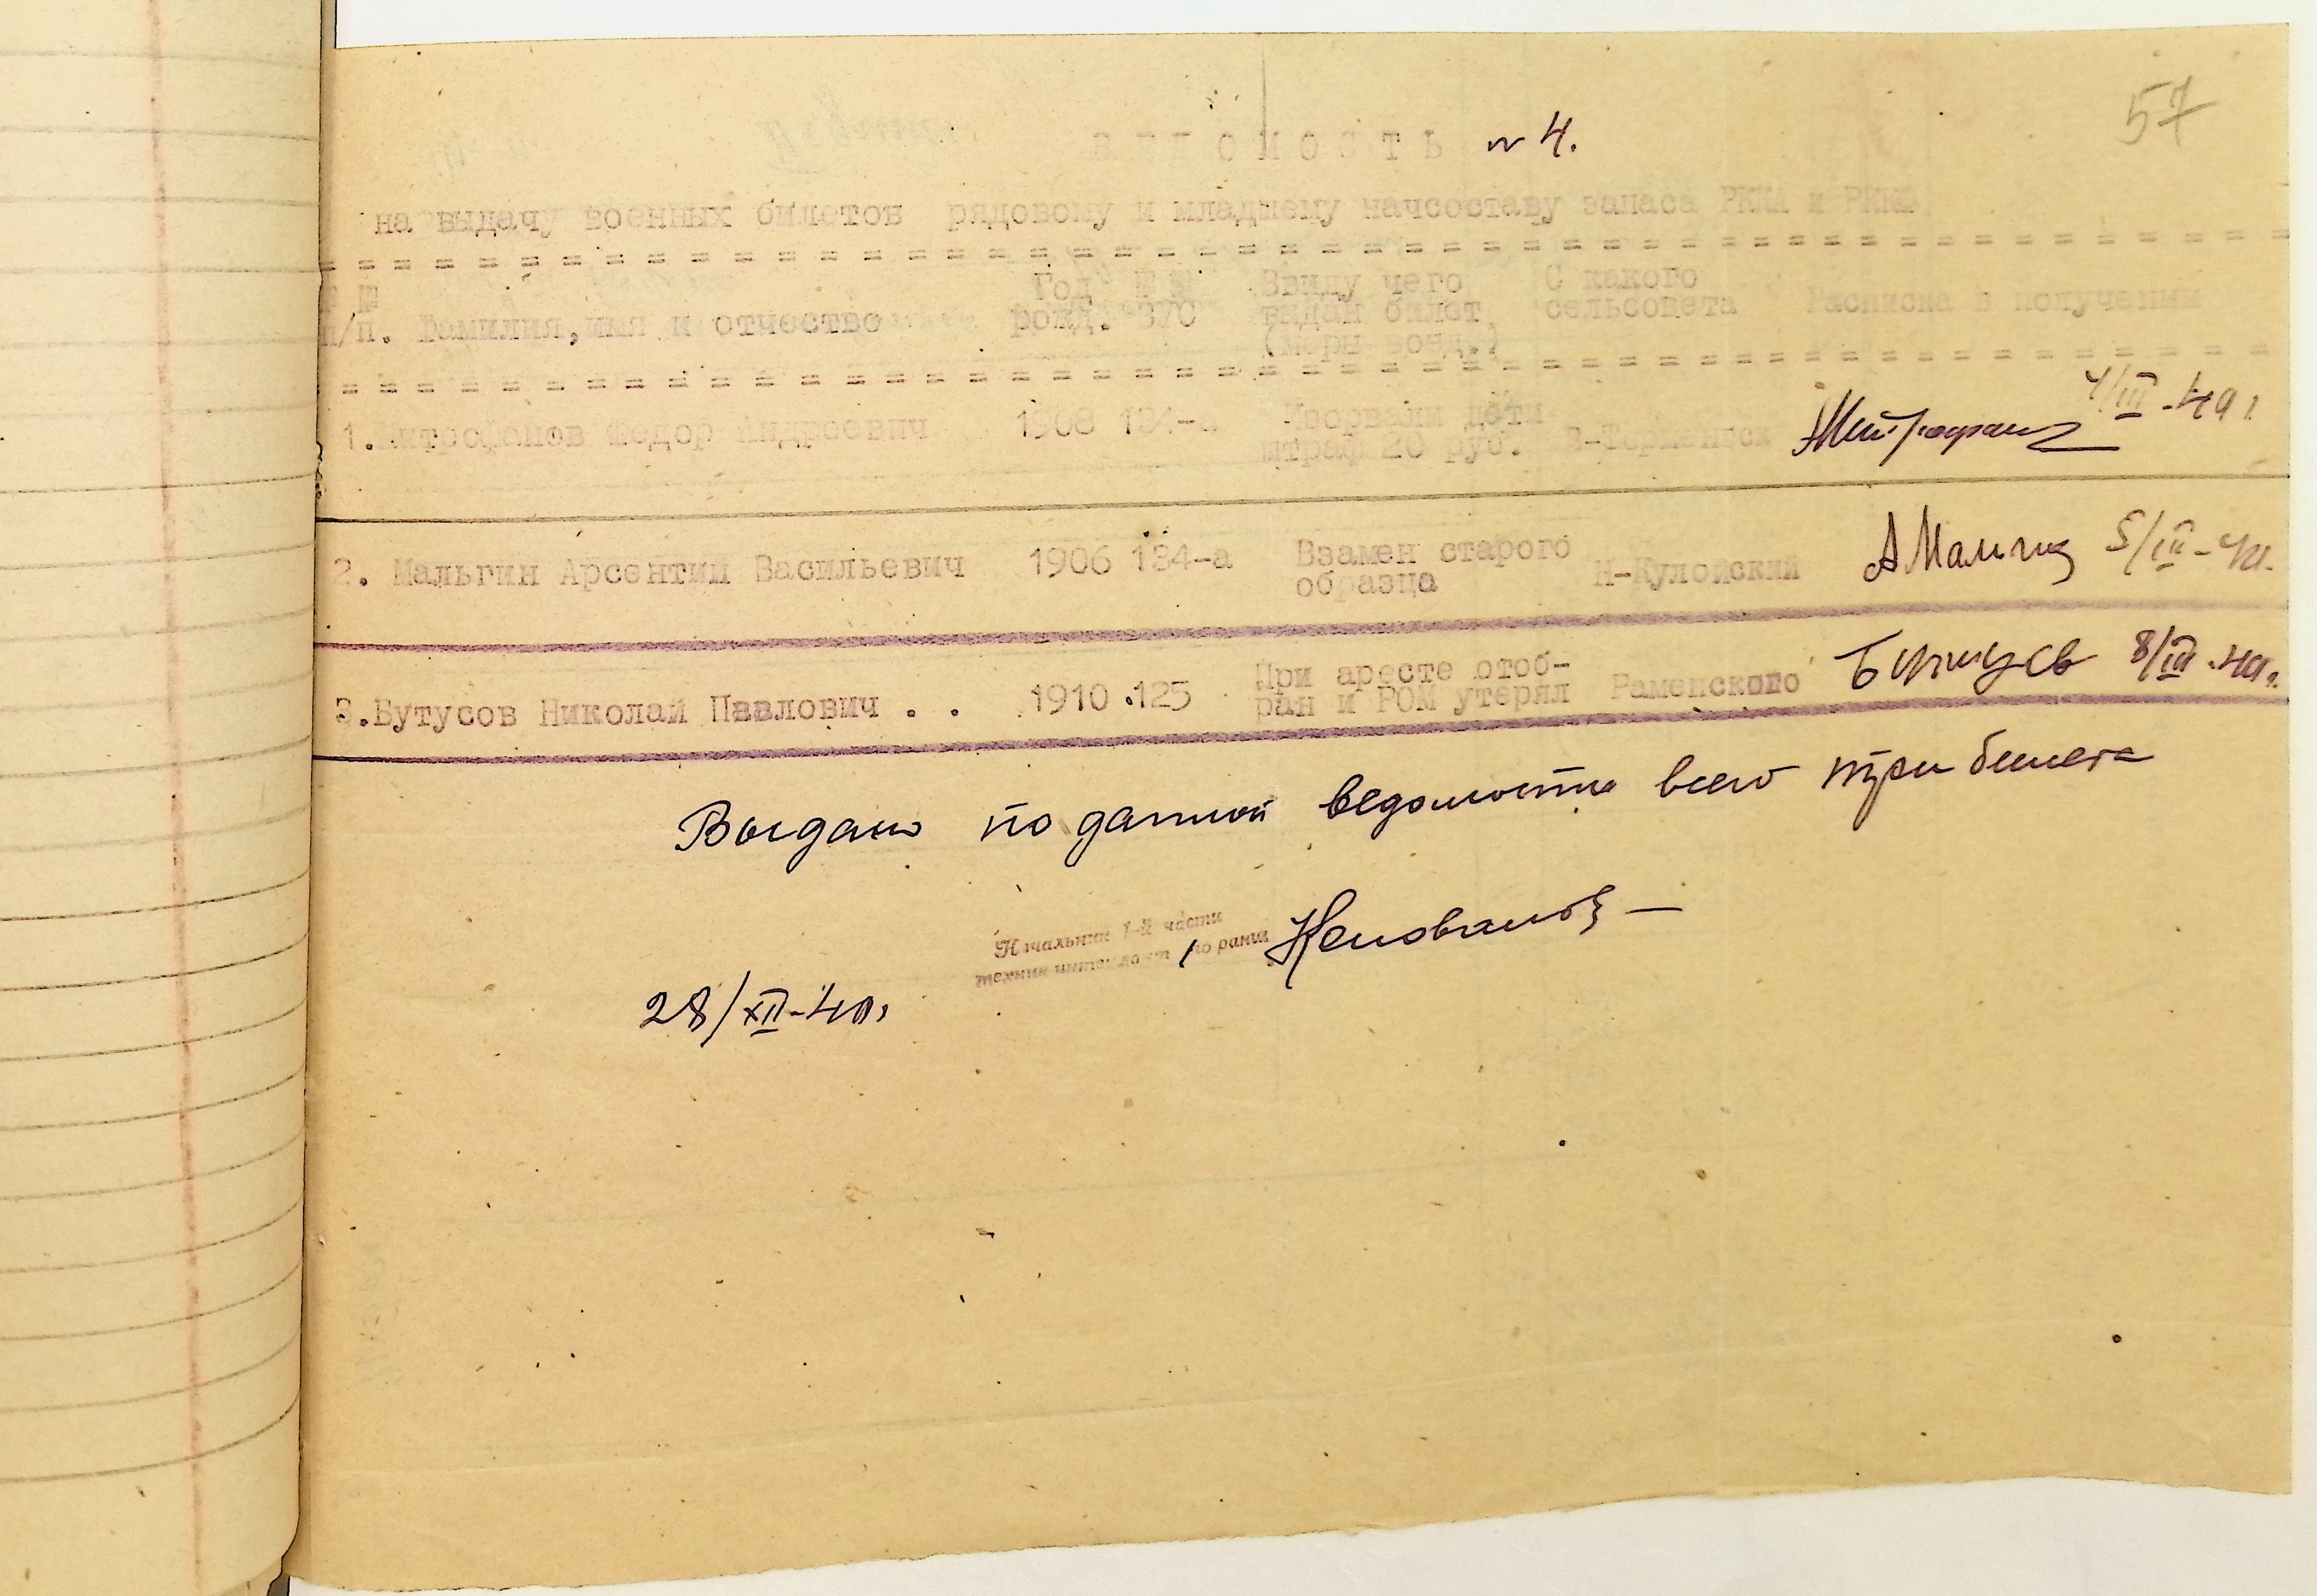 57
ВЕДОМОСТЬ № 4.
на выдачу военных билетов рядовому и младшему начсоставу запаса РККА и РКМФ
№ № Год № № Ввиду чего С какого
п/п. Фамилия, имя и отчество рожд. ВУС выдан билет сельсовета Расписка в получении
(меры возд.)
4/III-40 г.
1. Митрофанов Федор Андреевич 1908 134-а Изорвали дети
штраф 20 руб. Митрофан
2. Мальгин Арсентий Васильевич 1906 134-а Взамен старого Н-Кулойский А Мальгин 5/III-40.
образца
При аресте отоб- Бутусов 8/III-40г.
3. Бутусов Николай Павлович . . 1910 .125 ран и РОМ утерял Раменского
Выдано по данной ведомости всего три билета
Начальник 1-й части
техник-интендант 1 го ранга
28/XII-40г.